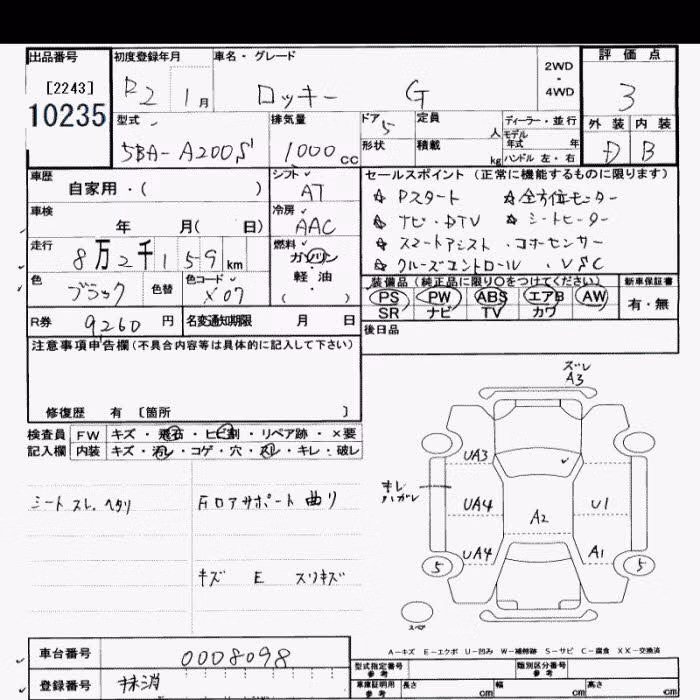 出品番号
[2243]
10235
初度登録年月
R2 1月
車名・グレード
ロッキー G
2WD
・
4WD
評価点
3
型式
5BA-A200S
排気量
1000cc
ドア 5
形状
定員
人
積載
kg
ディーラー・並行
モデル
年式 年
ハンドル 左・右
外装 内装
D B
車歴
自家用・( )
シフト
AT
セールスポイント (正常に機能するものに限ります)
☆ Pスタート ☆ 全方位モニター
☆ ナビ・DTV ☆ シートヒーター
☆ スマートアシスト・コーナーセンサー
☆ クルーズコントロール・VSC
車検
年 月( 日)
冷房
AAC
走行
8万2千159km
燃料
ガソリン
軽・油
( )
色
ブラック
色替
色コード
X07
装備品 (純正品に限り○をつけてください)
PS PW ABS エアB AW
SR ナビ TV カワ
新車保証書
有・無
R券 9260円
名変通知期限 月 日
後日品
注意事項申告欄(不具合内容等は具体的に記入して下さい)
修復歴 有 [箇所 ]
検査員 FW キズ・飛石・ヒビ割・リペア跡・×要
記入欄 内装 キズ・汚レ・コゲ・穴・スレ・キレ・破レ
シート スレ、ヘタリ
Fロアサポート 曲リ
キズ E スリキズ
ズレ
A3
UA3
キレ
ハガレ
UA4
U1
A2
UA4
A1
5
5
スペア
A-キズ E-エクボ U-凹み W-補修跡 S-サビ C-腐食 XX-交換済
車台番号 0008098
登録番号 抹消
型式指定番号
参考
類別区分番号
参考
車庫証明用
参考
長さ cm
幅 cm
高さ cm